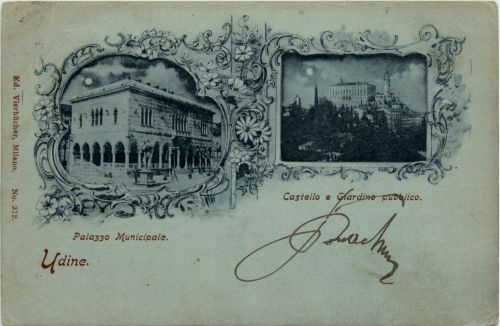 Ed. Vierbücher, Milano. No. 372.
Palazzo Municipale.
Castello e Giardino pubblico.
Udine.